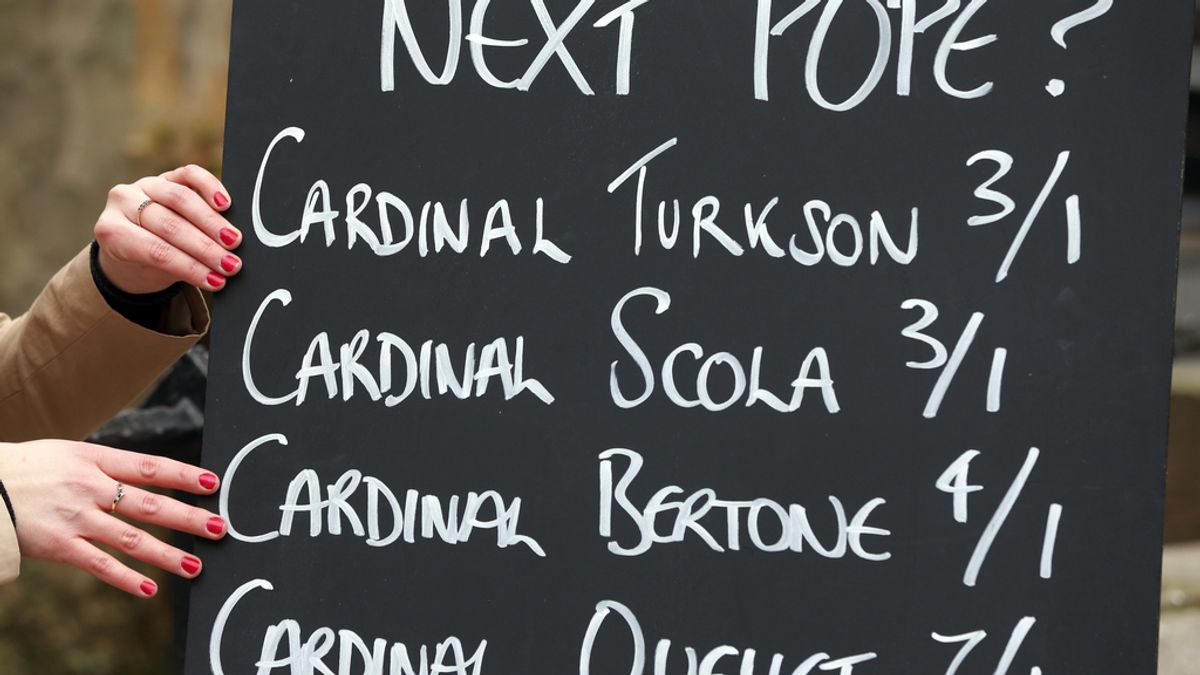 NEXT POPE?
CARDINAL TURKSON 3/1
CARDINAL SCOLA 3/1
CARDINAL BERTONE 4/1
CARDINAL OUELLET 7/1